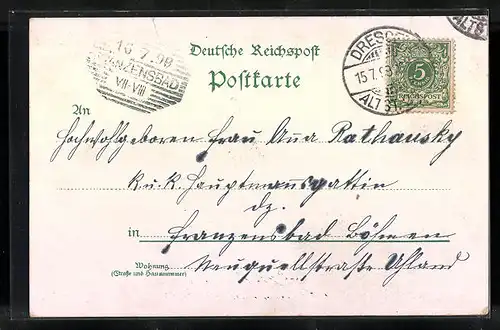 Deutsche Reichspost
Postkarte
16 7.98
FRANZENSBAD
VII-VIII
DRESDEN
15 7.98
ALTST.
5
REICHSPOST
ALTS
An
Hochwohlgeboren Frau Anna Rathausky
k. u. k. Hauptmannsgattin
dz.
in Franzensbad Böhmen
Wohnung
(Straße und Hausnummer)
Neuquellstraße Uhland